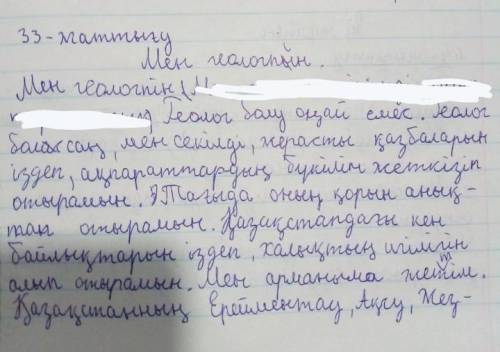 33-жаттығу
Мен геологпын.
Мен геологпін (М
Геолог болу оңай емес. Геолог
болсаң, мен секілді, жерасты қазбаларын
іздеп, ақпараттардың бүкілін жеткізіп
отырамын. Тағыда оның қорын анық-
тап отырамын. Қазақстандағы кен
байлықтарын іздеп, халықтың игілігін
алып отырамын. Мен арманыма жеттім.
Қазақстанның Ерейментау, Ақсу, Жез-